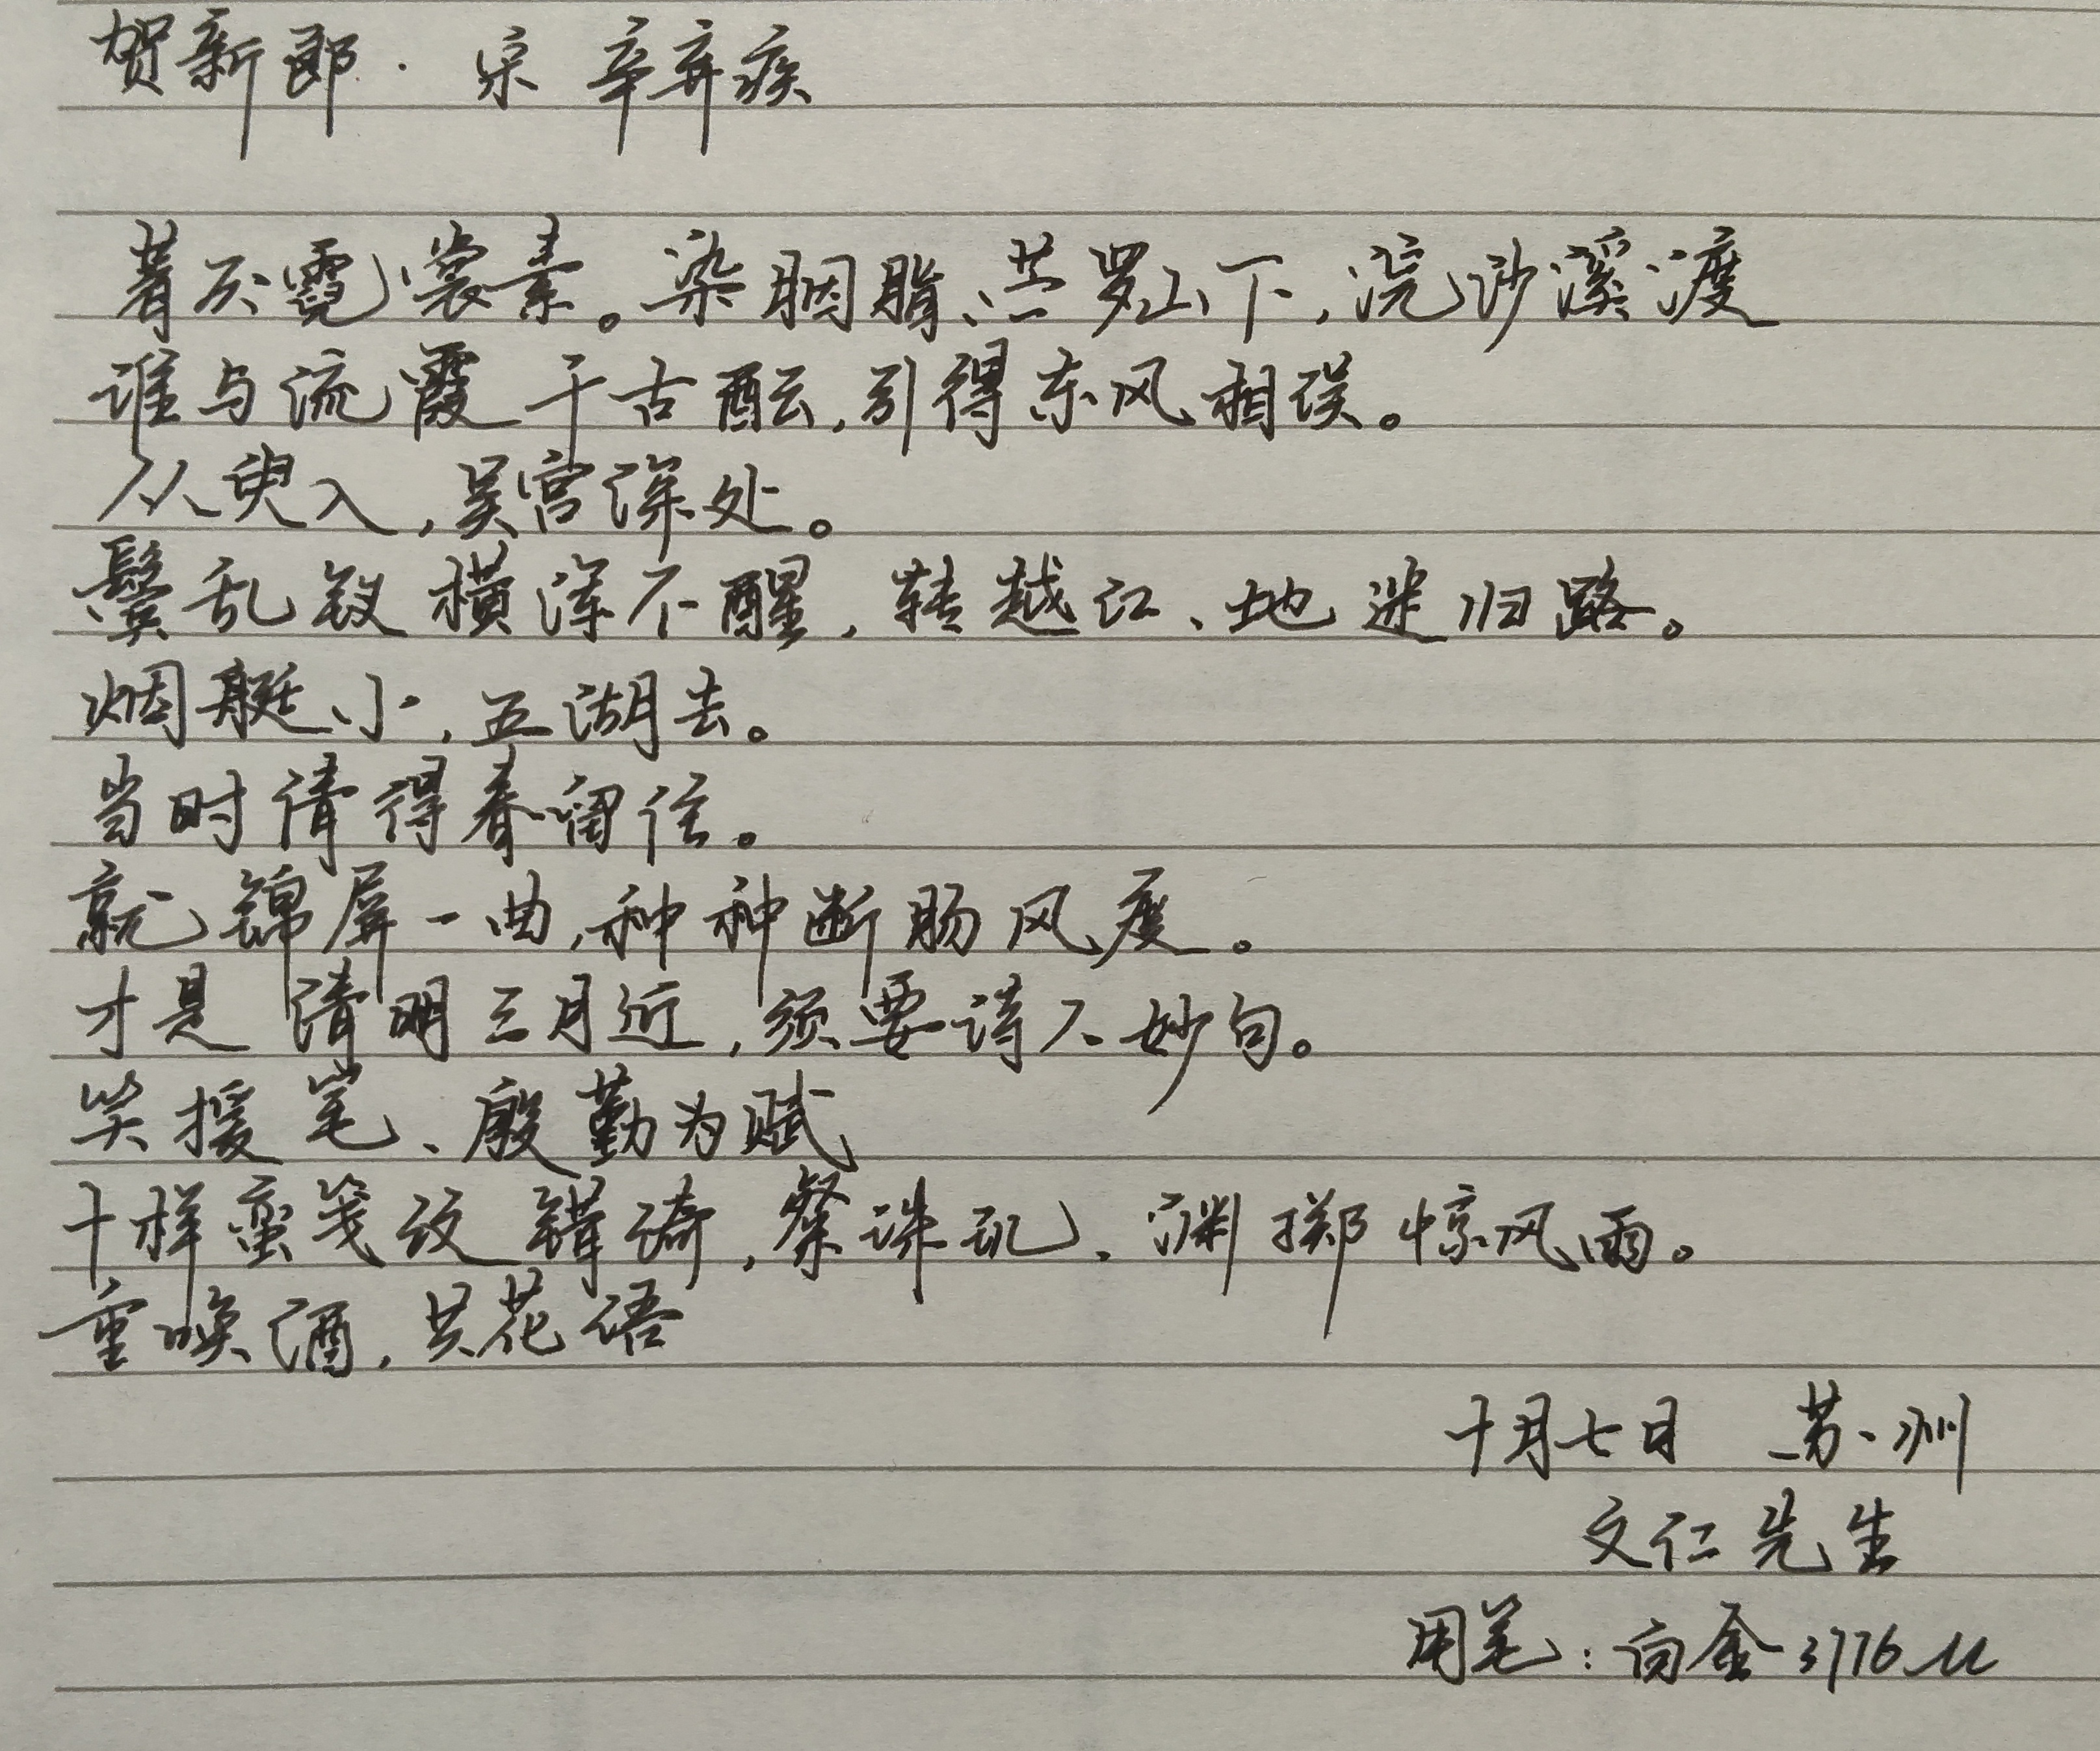 贺新郎·宋 辛弃疾
着厌霓裳素。染胭脂、苎罗山下,浣沙溪渡
谁与流霞千古酝,引得东风相误。
从臾入,吴宫深处。
鬓乱钗横浑不醒,转越江、地迷归路。
烟艇小,五湖去。
当时倩得春留住。
就锦屏一曲,种种断肠风度。
才是清明三月近,须要诗人妙句。
笑援笔、殷勤为赋
十样蛮笺纹错绮,粲珠玑、渊掷惊风雨。
重唤酒,共花语
十月七日 苏州
文仁先生
用笔:白金3776 M